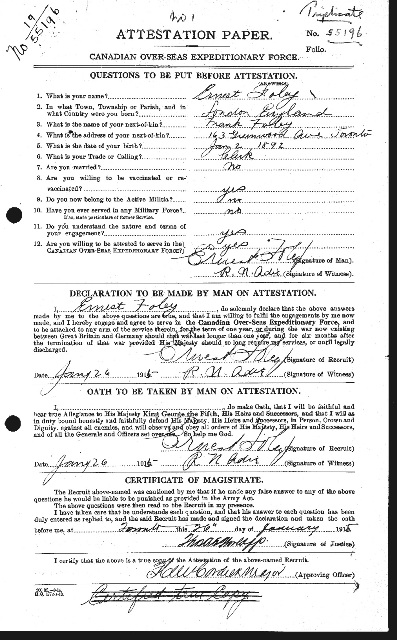 No 1
No 19
55196
Triplicate
ATTESTATION PAPER.
No. 55196
Folio.
CANADIAN OVER-SEAS EXPEDITIONARY FORCE.
QUESTIONS TO BE PUT BEFORE ATTESTATION.
(ANSWERS)
1. What is your name? Ernest Foley
2. In what Town, Township or Parish, and in
what Country were you born? London England
3. What is the name of your next-of-kin? Frank Foley
4. What is the address of your next-of-kin? 163 Greenwood Ave Toronto
5. What is the date of your birth? Jany 2 1892
6. What is your Trade or Calling? Clerk
7. Are you married? No
8. Are you willing to be vaccinated or re-
vaccinated? yes
9. Do you now belong to the Active Militia? no
10. Have you ever served in any Military Force? no
If so, state particulars of former Service.
11. Do you understand the nature and terms of
your engagement? yes
12. Are you willing to be attested to serve in the
CANADIAN OVER-SEAS EXPEDITIONARY FORCE? yes
Ernest Foley (Signature of Man).
R. N. Adie (Signature of Witness).
DECLARATION TO BE MADE BY MAN ON ATTESTATION.
I, Ernest Foley, do solemnly declare that the above answers
made by me to the above questions are true, and that I am willing to fulfil the engagements by me now
made, and I hereby engage and agree to serve in the Canadian Over-Seas Expeditionary Force, and
to be attached to any arm of the service therein, for the term of one year, or during the war now existing
between Great Britain and Germany should that war last longer than one year, and for six months after
the termination of that war provided His Majesty should so long require my services, or until legally
discharged.
Ernest Foley (Signature of Recruit)
Date Jany 26 1915 R. N. Adie (Signature of Witness)
OATH TO BE TAKEN BY MAN ON ATTESTATION.
I, Ernest Foley, do make Oath, that I will be faithful and
bear true Allegiance to His Majesty King George the Fifth, His Heirs and Successors, and that I will as
in duty bound honestly and faithfully defend His Majesty, His Heirs and Successors, in Person, Crown and
Dignity, against all enemies, and will observe and obey all orders of His Majesty, His Heirs and Successors,
and of all the Generals and Officers set over me. So help me God.
Ernest Foley (Signature of Recruit)
Date Jany 26 1915 R N Adie (Signature of Witness)
CERTIFICATE OF MAGISTRATE.
The Recruit above-named was cautioned by me that if he made any false answer to any of the above
questions he would be liable to be punished as provided in the Army Act.
The above questions were then read to the Recruit in my presence.
I have taken care that he understands each question, and that his answer to each question has been
duly entered as replied to, and the said Recruit has made and signed the declaration and taken the oath
before me, at Toronto this 26 day of January 1915
(Signature of Justice)
I certify that the above is a true copy of the Attestation of the above-named Recruit.
Major (Approving Officer)
Certified True Copy